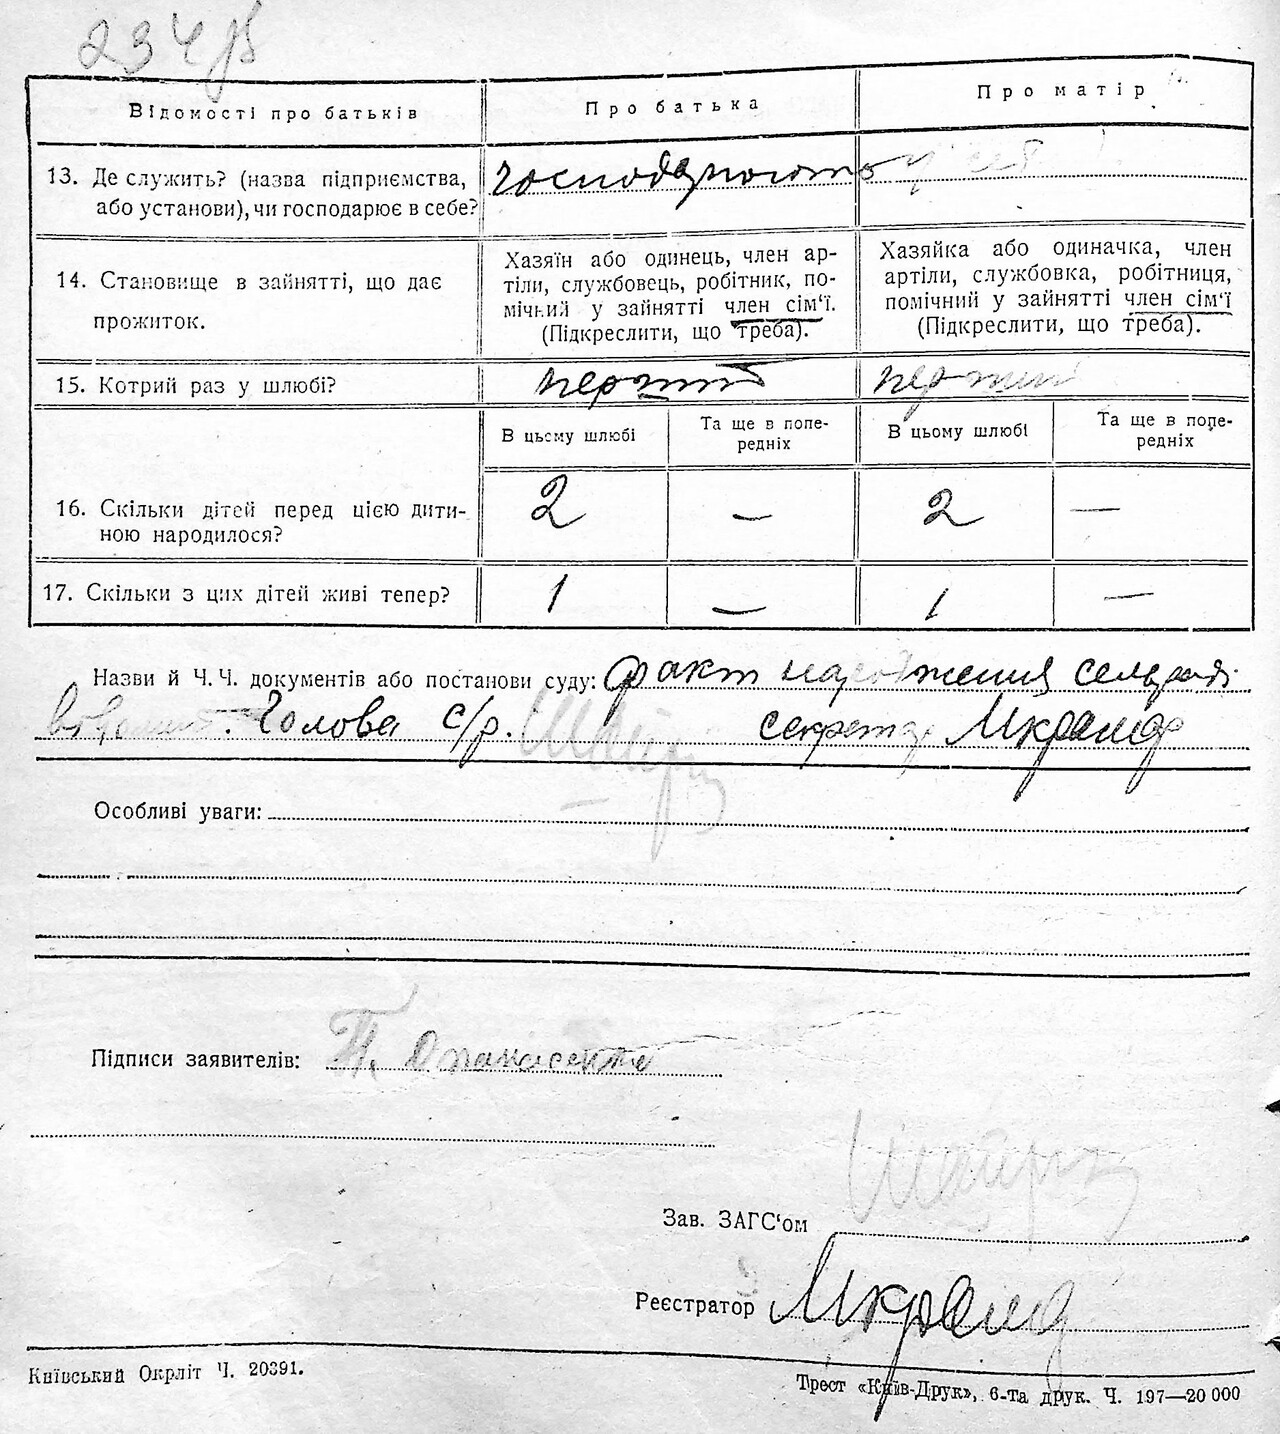 234
Відомості про батьків
Про батька
Про матір
13. Де служить? (назва підприємства,
або установи), чи господарює в себе?
господарюють у
14. Становище в зайнятті, що дає
прожиток.
Хазяїн або одинець, член ар-
тіли, службовець, робітник, по-
мічний у зайнятті член сім‘ї.
(Підкреслити, що треба).
Хазяйка або одиначка, член
артіли, службовка, робітниця,
помічний у зайнятті член сім‘ї
(Підкреслити, що треба).
15. Котрий раз у шлюбі?
перший
перший
В цьсму шлюбі
Та ще в попе-
редніх
В цьому шлюбі
Та ще в попе-
редніх
16. Скільки дітей перед цією дити-
ною народилося?
2 — 2 —
17. Скільки з цих дітей живі тепер?
1 — 1 —
Назви й Ч. Ч. документів або постанови суду: факт народження сельраді
Голова с/р. секретар
Особливі уваги:
Підписи заявителів: П. Опанасенко
Зав. ЗАГС‘ом
Реєстратор
Київський Окрліт Ч. 20391.
Трест «Київ-Друк», 6-та друк. Ч. 197—20 000